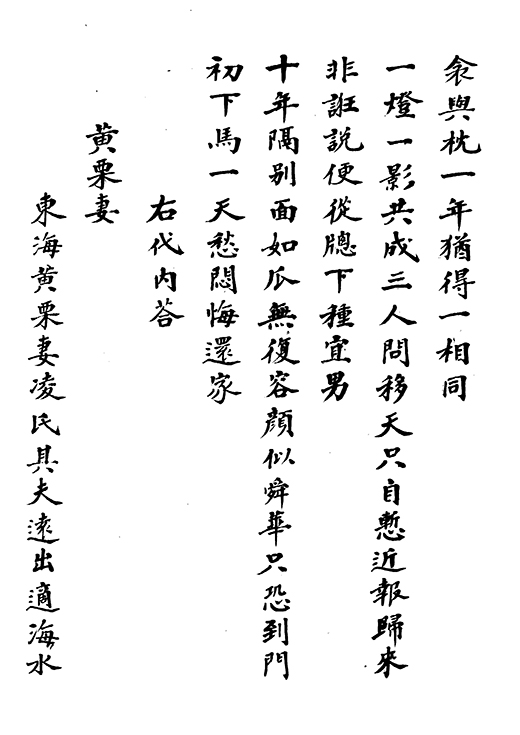 衾與枕一年猶得一相同
一燈一影共成三人問移天只自慙近報歸來
非誑說便從牕下種宜男
十年隔別面如瓜無復容顏似舜華只恐到門
初下馬一天愁悶悔還家
右代內荅
黃栗妻
東海黃栗妻凌氏具夫遠出適海水